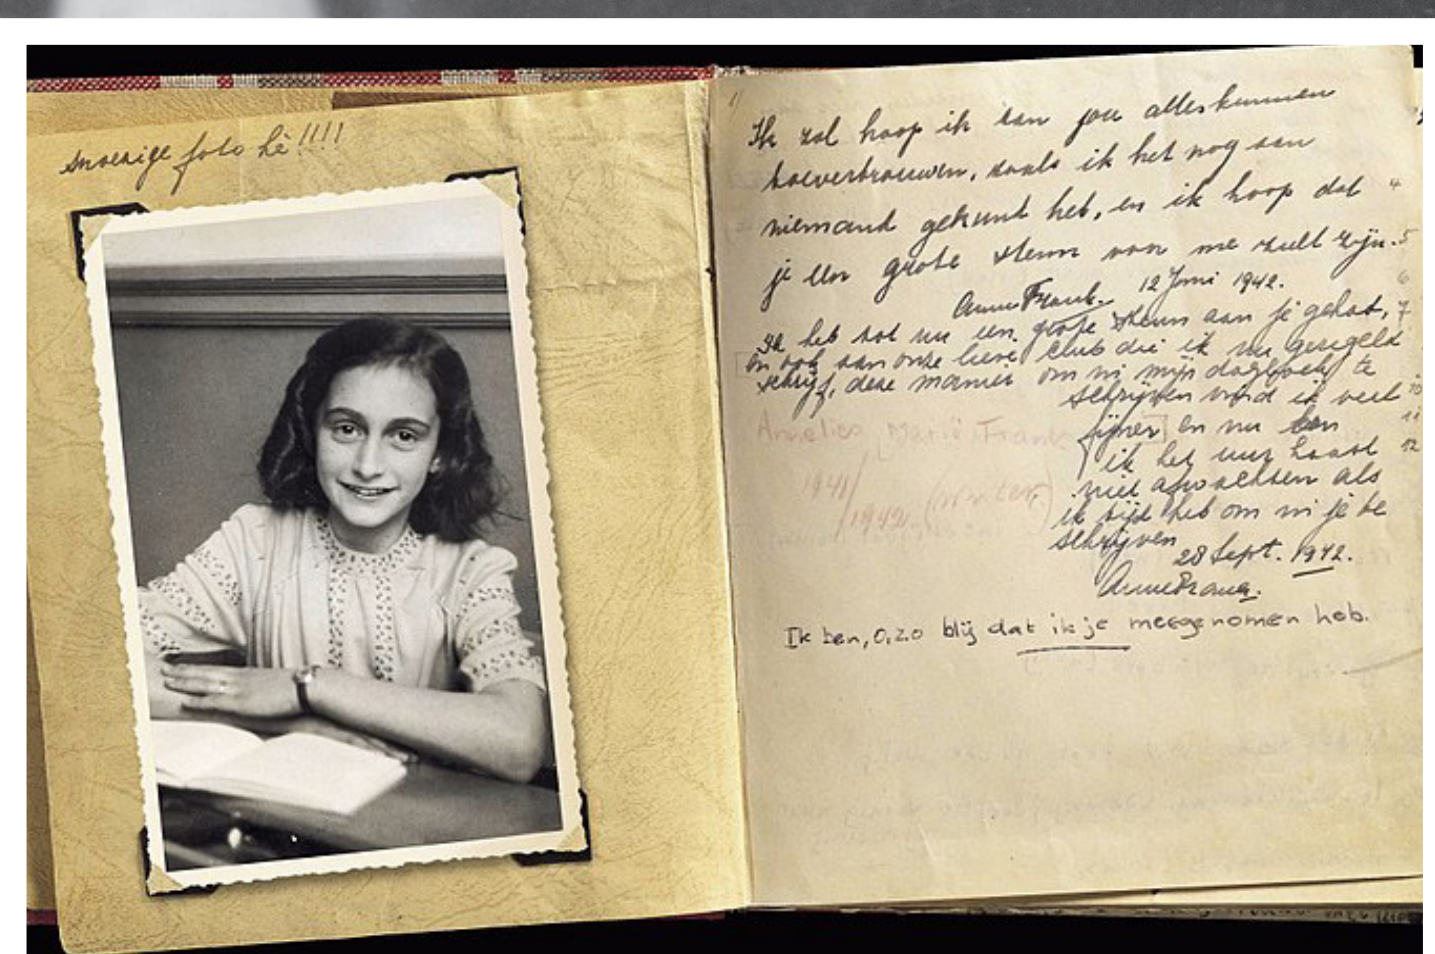 snoezige foto hè!!!!
Ik zal hoop ik aan jou alles kunnen
toevertrouwen, zoals ik het nog aan
niemand gekund heb, en ik hoop dat
je een grote steun voor me zult zijn.
Anne Frank. 12 Juni 1942.
Ik heb tot nu een grote steun aan je gehat,
en ook aan onze lieve club die ik nu geregeld
schrijf, deze manier om in mijn dagboek te
schrijven vind ik veel
fijner en nu kan
ik het uur haast
niet afwachten als
ik tijd heb om in je te
schrijven
28 Sept. 1942.
Anne Frank.
Annelies Marie Frank
1941/
1942. (winter)
Ik ben, O, zo blij dat ik je meegenomen heb.